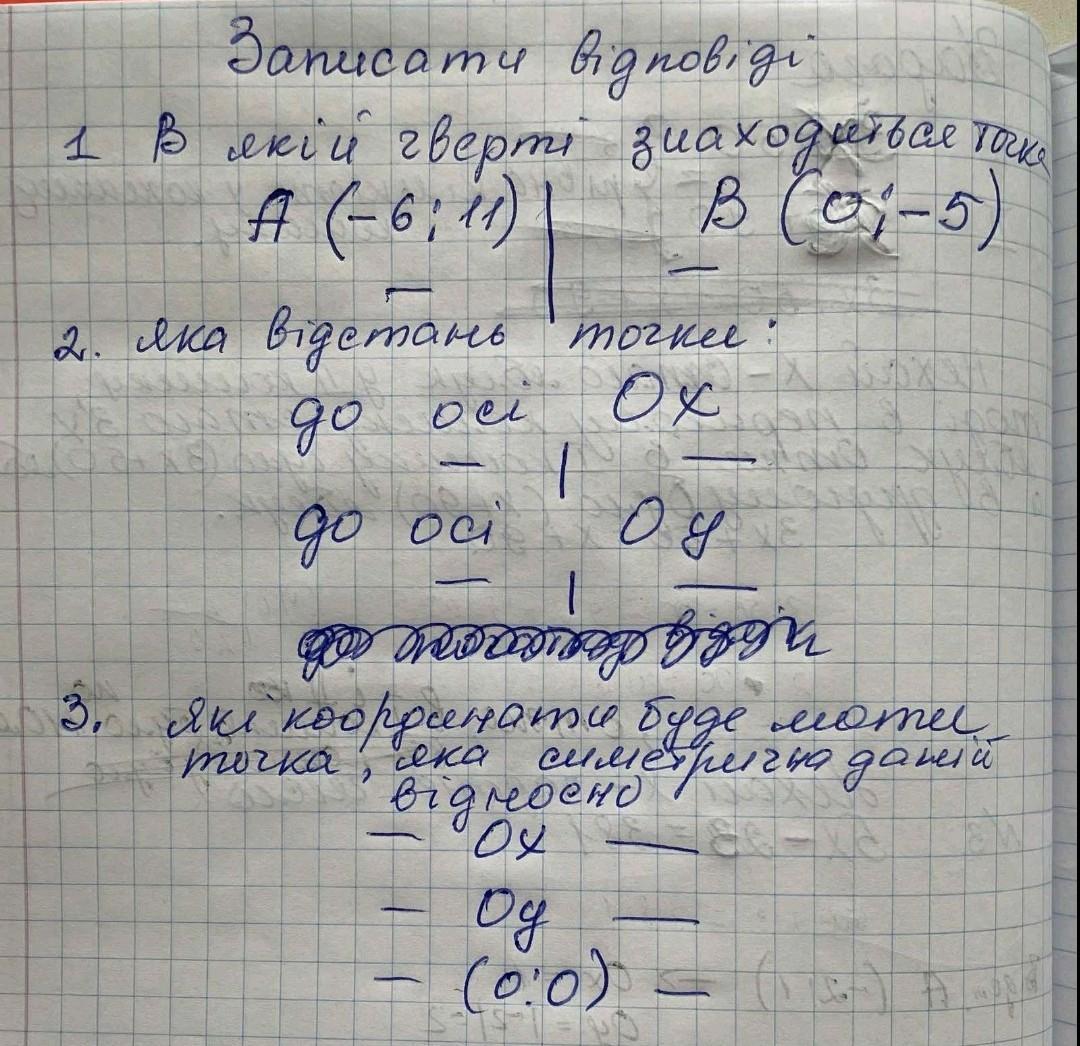 Записати відповіді
1 В якій чверті знаходиться точка
А (-6; 11) | В (0; -5)
— —
2. яка відстань точки:
до осі Ох
— | —
до осі Оу
— | —
3. які координати буде мати
точка, яка симетрична даній
відносно
— Ох —
— Оу —
— (0:0) —